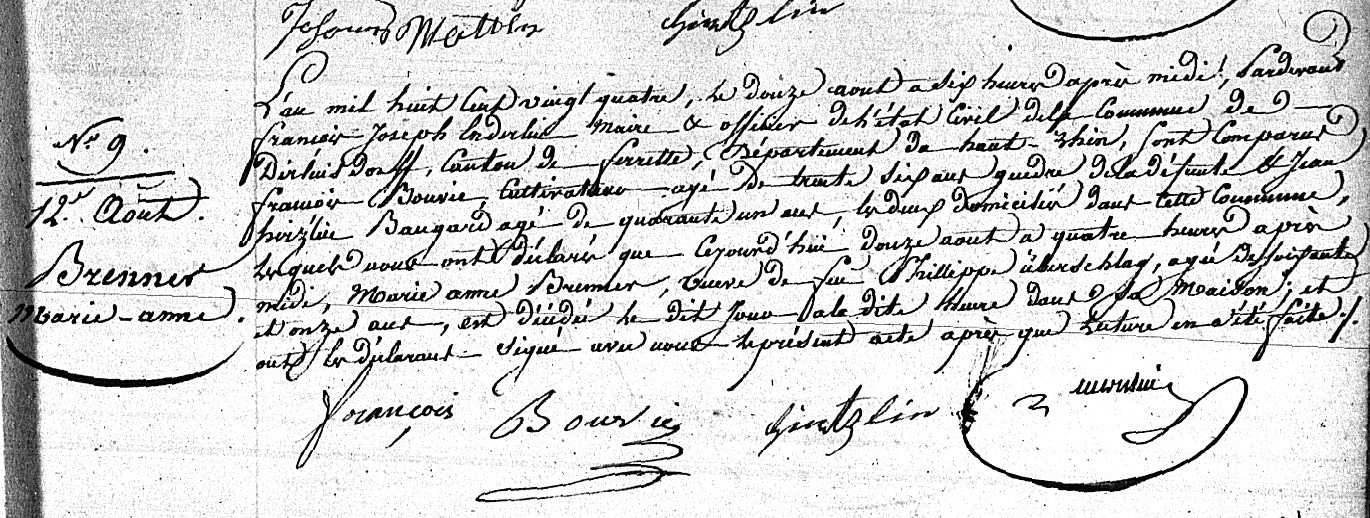 Hintzlin
N.º 9.
12.e Aout.
Brenner
Marie-anne.
L'an mil huit Cent vingt quatre, le douze aout a six heures d'après midi, Pardevant
francois Joseph Enderlin Maire & officier de l'état Civil de la Commune de
Dirlinsdorff, Canton de ferrette, Département du haut-Rhin, sont Comparus
francois Bourie, Cultivateur agé de trente six ans, de la défunte & Jean
Hirzlin Bangard agé de quarante un ans, les deux domiciliés dans cette Commune,
lesquels nous ont déclarés que Cejourd'hüi douze aout a quatre heures après
midi, Marie anne Brenner, veuve de feu Phillippe überschlag, agée de soisante
et onze ans, est décédée le dit Jour a la dite heure dans sa Maison; et
ont les déclarant signe avec nous le présent acte après que lecture en a été faite./.
François Bourie Hintzlin